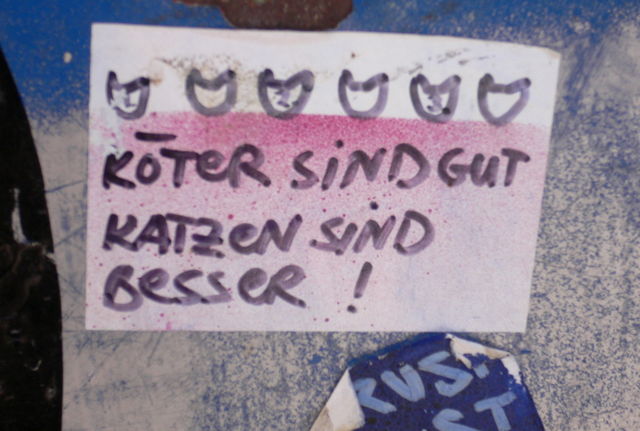 KÖTER SIND GUT
KATZEN SIND
BESSER !
RUS
ST